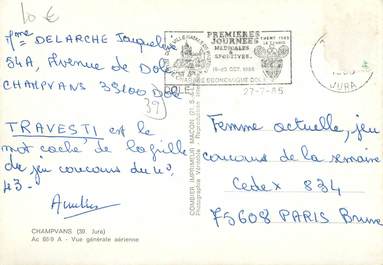 10 €
Mme DELARCHE Jacqueline
54A, Avenue de DOLE
CHAMPVANS 39100 DOLE
39
TRAVESTI est le
mot caché de la grille
du jeu concours du n°
43-
CHAMPVANS (39. Jura)
Ac 86 9 A - Vue générale aérienne
COMBIER IMPRIMEUR MACON
PREMIÈRES
JOURNÉES
MÉDICALES
&
SPORTIVES
19-20 OCT. 1985
ECONOMIQUE DOLE
27-7-85
JURA
Femme actuelle, jeu
concours de la semaine
Cedex 834
75608 PARIS Brune